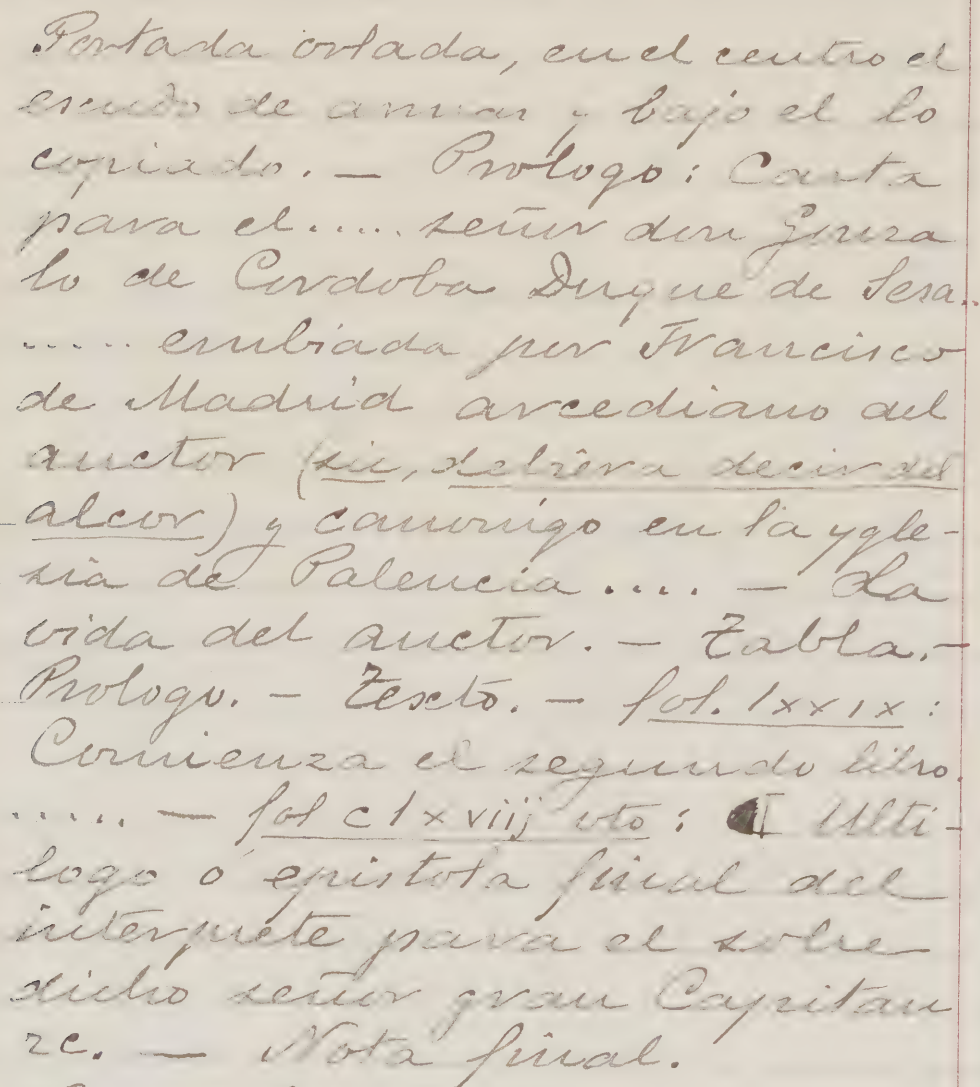 Portada orlada, en el centro el
escudo de armas y bajo el lo
copiado. — Prologo: Carta
para el ..... señor don Gonza
lo de Cordoba Duque de Sesa..
..... embiada por Francisco
de Madrid arcediano del
auctor (sic, debiera decir del
alcor) y canonigo en la ygle-
sia de Palencia .... — La
vida del auctor. — Tabla. —
Prologo. — Texto. — fol. lxxix:
Comienza el segundo libro.
..... — fol clxviij vto: ¶ Ulti-
logo ó epistola final del
interprete para el sobre
dicho señor gran Capitan
zc. — Nota final.